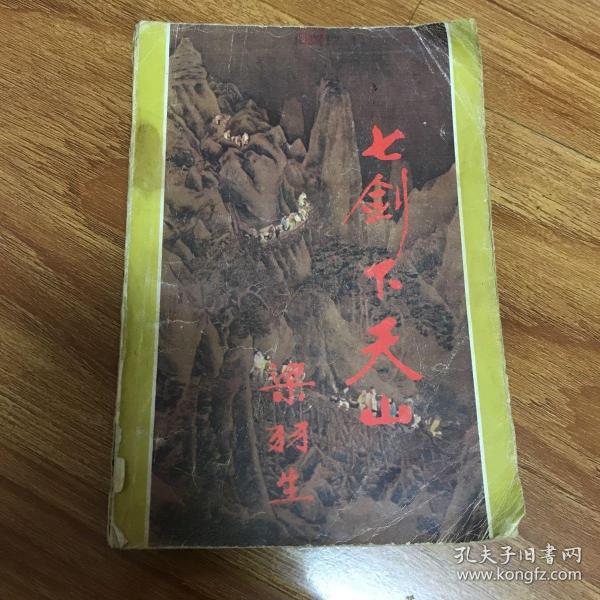 七剑下天山
梁羽生
孔夫子旧书网
www.kongfz.com